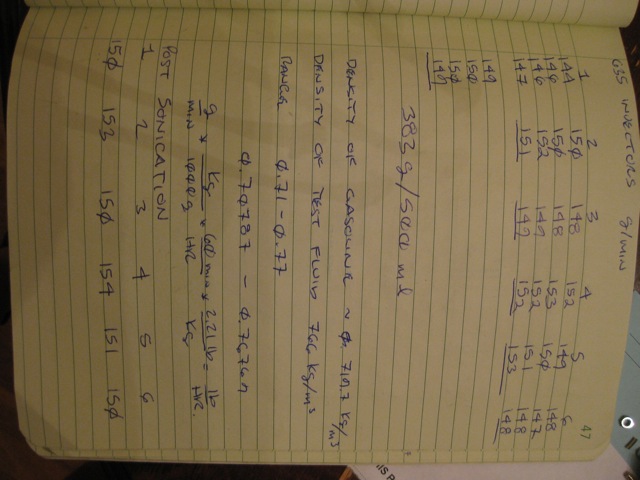 47
G35 INJECTORS g/min
1 2 3 4 5 6
144 150 148 152 149 148
146 150 148 153 150 147
146 152 149 152 151 148
147 151 149 152 153 148
149
150
150
149
383g/500 ml
DENSITY OF GASOLINE ~ kg/m3
DENSITY OF TEST FLUID 766 kg/m3
RANGE 0.71 - 0.77
0.70787 -
g/min * kg/1000g * 60 min/HR * 2.21 lb/kg = lb/HR.
POST SONICATION
1 2 3 4 5 6
150 153 150 154 151 150